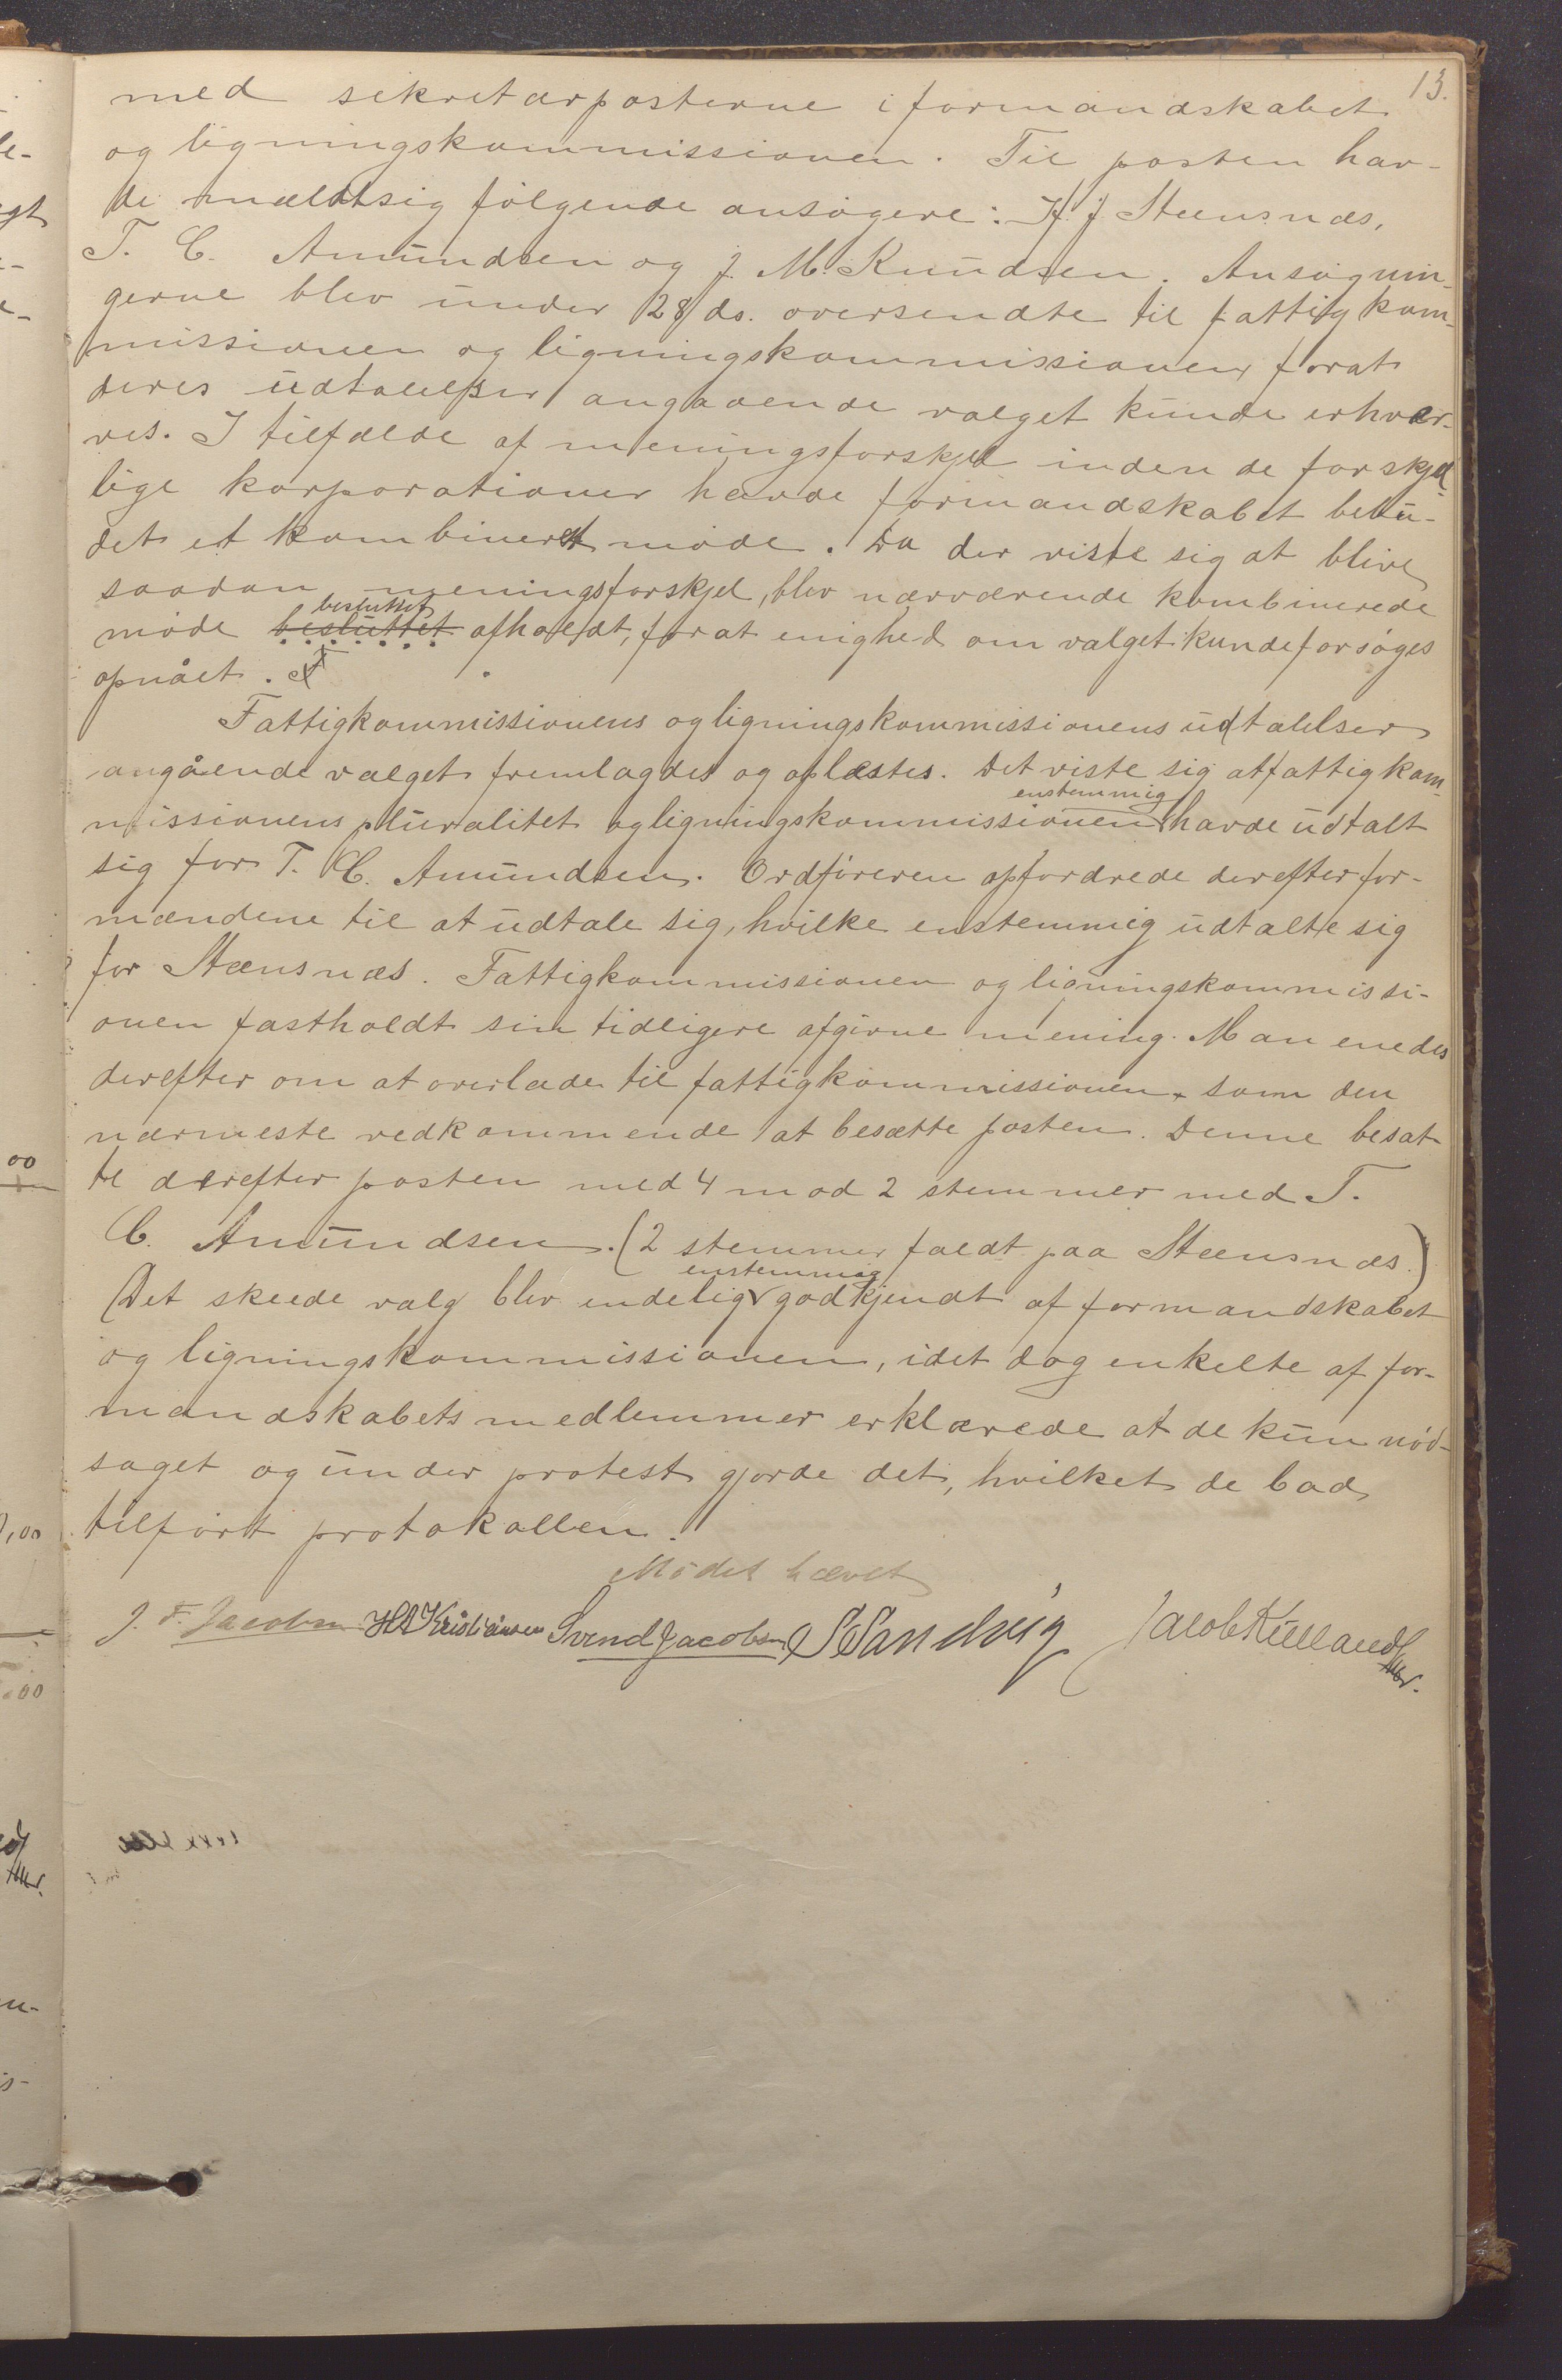 13.
med sekretærposterne i formandskabet
og ligningskommissionen. Til posten hav-
de mældt sig følgende ansøgere: H. J. Steensnæs,
T. C. Amundsen og J. M. Knudsen. Ansøgnin-
gerne blev under 28/ ds. oversendte til fattigkom-
missionen og ligningskommissionen forat
deres udtalelser angaaende valget kunde erhver-
ves. I tilfælde af meningsforskjel inden de forskjel-
lige korporationer havde formandskabet bebu-
det et kombineret møde. Da der viste sig at blive
saadan meningsforskjel, blev nærværende kombinerede
besluttet
møde besluttet afholdt, forat enighed om valget kunde forsøges
opnået.
Fattigkommissionens og ligningskommissionens udtalelser
angående valget fremlagdes og oplæstes. Det viste sig at fattigkom-
enstemmig
missionens pluralitet og ligningskommissionen havde udtalt
sig for T. C. Amundsen. Ordføreren opfordrede derefter for-
mændene til at udtale sig, hvilke enstemmig udtalte sig
for Steensnæs. Fattigkommissionen og ligningskommissi-
onen fastholdt sin tidligere afgivne mening. Man enedes
derefter om at overlade til fattigkommissionen som den
nærmeste vedkommende at besætte posten. Denne besat-
te derefter posten med 4 mod 2 stemmer med T.
C. Amundsen. (2 stemmer faldt paa Steensnæs.)
enstemmig
Det skeede valg blev endelig godkjendt af formandskabet
og ligningskommissionen, idet dog enkelte af for-
mandskabets medlemmer erklærede at de kun nød-
saget og under protest gjorde det, hvilket de bad
tilført protokollen.
Mødet hævet
J. F. Jacobsen H A Kristiansen Svend Jacobsen S Sandvig Jacob Kielland